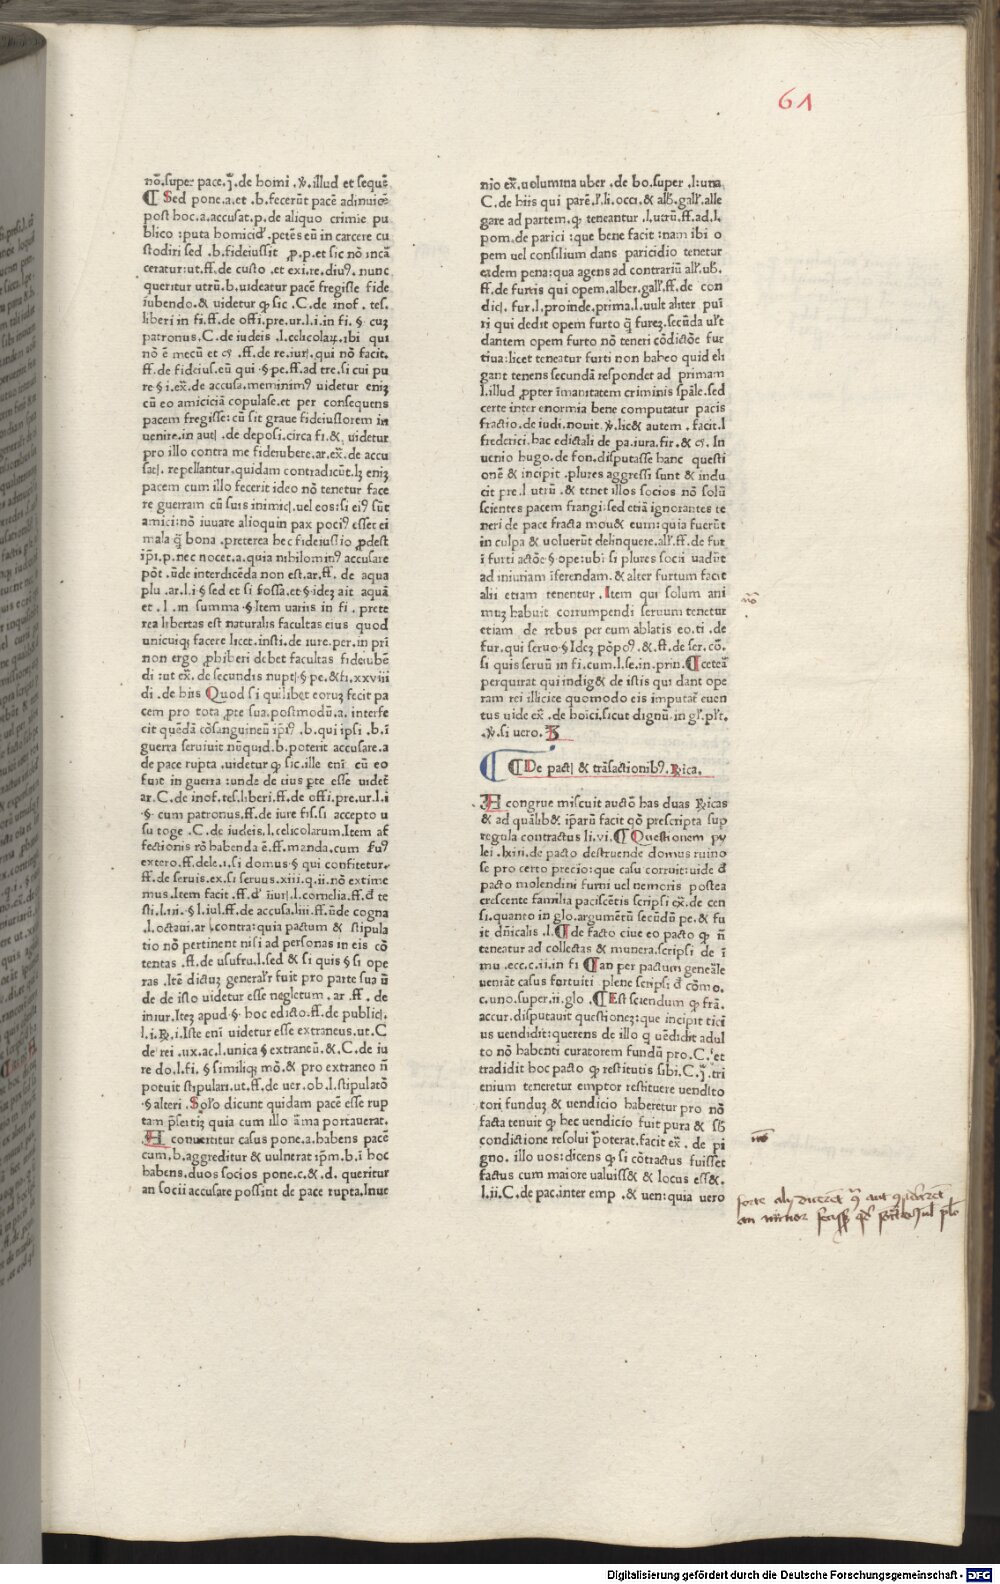 61
nõ.super pace.ʝ̃.de homi .℣.illud et sequẽ
¶ Sed pone.a.et .b.fecerũt pacẽ adinuicẽ
post hoc.a.accusat.p.de aliquo crimie pu
blico :puta homicid'.petẽs eũ in carcere cu
stodiri sed .b.fideiussit ꝓ.p.et sic nõ incã
ceratur:ut.ff.de custo .et exi.re.diuꝰ. nunc
queritur utrũ.b.uideatur pacẽ fregisse fide
iubendo.& uidetur ꝙ sic .C.de inof. tes.
liberi in fi.ff.de offi.pre.ur.l.i.in fi. § cuꝫ
patronus.C.de iudeis .l.celicolaꝝ.ibi qui
nõ ẽ mecũ et c̃. .ff.de re.iur.qui nõ facit.
ff.de fideius.eũ qui .§ pe.ff.ad tre.si cui pu
re § i.ex̃.de accusa.meminimꝰ uidetur eniꝫ
cũ eo amiciciã copulasse.et per consequens
pacem fregisse: cũ sit graue fideiussorem in
uenire.in aut .de deposi.circa fi.&. uidetur
pro illo contra me fideiubere.ar.ex̃.de accu
sat. repellantur.quidam contradicũt.lꝫ eniꝫ
pacem cum illo fecerit ideo nõ tenetur face
re guerram cũ suis inimic.uel eos:si eiꝰ sũt
amici:nõ iuuare alioquin pax pociꝰ esset ei
mala ꝗ̃ bona .preterea hec fideiussio ꝓdest
ip̃i.p.nec nocet.a.quia nihilominꝰ accusare
põt .ũde interdicẽda non est.ar.ff. de aqua
plu .ar.l.i § sed et si fossa.et § ideꝫ ait aquã
et .l .in summa .§ Item uariis in fi . prete
rea libertas est naturalis facultas eius quod
unicuiqꝫ facere licet.insti.de iure.per.in pri
non ergo ꝓhiberi debet facultas fideiubẽ
di :ut ex̃.de secundis nupt.§ pe.&fi.xxviii
di .de hiis Quod si quilibet eoruꝫ fecit pa
cem pro tota ꝑte sua.postmodũ.a. interfe
cit quẽdã cõsanguineũ ip̃iꝰ .b.qui ipsi .b.ĩ
guerra seruiuit nũquid.b.poterit accusare.a
de pace rupta .uidetur ꝙ sic.ille eni cũ eo
fuit in guerra :unde de eius ꝑte esse uidet
ar.C.de inof.tes.liberi.ff.de offi.pre.ur.l.i
.§ cum patronus.ff.de iure fis.si accepto u
su toge .C.de iudeis.l.celicolarum.Item af
fectionis rõ habenda ẽ.ff.manda.cum fuꝰ
extero.ff.dele.i.si domus § qui confitetur.
ff.de seruis.ex.si seruus.xiii.q.ii.nõ extime
mus.Item facit .ff.d' iniur.l.cornelia.ff.d' te
sti.l.iii.§ l.iul.ff.de accusa.liii.ff.ũde cogna
.l.octaui.ar .contra:quia pactum & stipula
tio nõ pertinent nisi ad personas in eis cõ
tentas .ff.de usufru.l.sed & si quis § si ope
ras .Itẽ dictuꝫ general'r fuit pro parte sua ũ
de de isto uidetur esse neglectum .ar .ff. de
iniur.Iteꝫ apud § hoc edicto.ff.de public.
l.i.℟.i.Iste eni uidetur esse extraneus.ut.C
de rei .ux.ac.l.unica § extraneũ.&.C.de iu
re do.l.fi. § similiqꝫ mõ.& pro extraneo ñ
potuit stipulari.ut.ff.de uer.ob.l.stipulatõ
§ alteri .Sol'o dicunt quidam pacẽ esse rup
tam p̃sertiꝫ quia cum illo ãma portauerat.
A conuertitur casus pone.a.habens pacẽ
cum.b.aggreditur & uulnerat ip̃m.b.i hoc
habens.duos socios pone.c.& .d. queritur
an socii accusare possint de pace rupta.Inue
nio ex̃.uolumina uber .de bo.super .l:una
C.de hiis qui parẽ.l'.li.occi.& alb̃.gall'.alle
gare ad partem.ꝙ teneantur .l.utrũ.ff.ad.l.
pom.de parici :que bene facit :nam ibi o
pem uel consilium dans paricidio tenetur
eadem pena:qua agens ad contrariũ all'.ub̃.
ff.de furtis qui opem.alber.gall'.ff.de con
dic. fur.l.proinde.prima.l.uult aliter puĩ
ri qui dedit opem furto ꝙ fureꝫ.secũda ul't
dantem opem furto nõ teneri cõdictõe fur
tiua:licet teneatur furti non habeo quid eli
gant tenens secundã respondet ad primam
l.illud ꝓpter ĩmanitatem criminis spãle.sed
certe inter enormia bene computatur pacis
fractio.de iudi.nouit.℣.lic& autem . facit.l
frederici.hac edictali de pa.iura.fir.& c̃. In
uenio hugo.de fon.disputasse hanc questi
onẽ & incipit .plures aggressi sunt & indu
cit pre.l utrũ .& tenet illos socios nõ solũ
scientes pacem frangi:sed etiã ignorantes te
neri de pace fracta mou& eum:quia fuerũt
in culpa & uoluerũt delinquere.all'.ff.de fur
ĩ furti actõe § ope:ubi si plures socii uadũt
ad iniuriam ĩferendam.& alter furtum facit
alii etiam tenentur .Item qui solum ani
muꝫ habuit corrumpendi seruum tenetur
etiam de rebus per eum ablatis eo.ti .de
fur.qui seruo § Ideꝫ põpoꝰ.&.ff.de ser.cõ.
si quis seruũ in fi.cum.l.se.in.prin.¶ceteã
perquirat qui indig& de istis qui dant ope
ram rei illicite quomodo eis imputat̃ euen
tus uide ex̃ .de hoici.sicut dignũ.in gl'.pl'r.
.℣.si uero. ℞
¶ De pact & trãsactionibꝰ.℞ica.
A congrue miscuit auctõ has duas ℞icas
& ad quãlib& ip̃arũ facit qõ prescripta sup
regula contractus li.vi.¶ Questionem py
lei .lxiii.de pacto destruende domus ruino
se pro certo precio:que casu corruit:uide d'
pacto molendini furni uel nemoris postea
crescente familia paciscẽtis scripsi ex̃.de cen
si.quanto in glo.argumẽtũ secũdũ pe.& fu
it dñicalis .l.¶ de facto ciue eo pacto ꝙ ñ
teneatur ad collectas & munera.scripsi de ĩ
mu.ecc.c.ii.in fi ¶ an per pactum geneãle
ueniãt casus fortuiti plene scripsi d' cõmo.
c.uno.super.ii.glo .¶ Est sciendum ꝙ frã.
accur.disputauit questioneꝫ:que incipit tici
us uendidit:querens de illo ꝙ uẽdidit adul
to nõ habenti curatorem fundũ pro.C.'et
tradidit hoc pacto ꝙ restitutis sibi.C.ʝ̃.tri
enium teneretur emptor restituere uendito
tori funduꝫ & uendicio haberetur pro nõ
facta tenuit ꝙ hec uendicio fuit pura & sb̃
condictione resolui poterat.facit ex̃ . de pi
gno. illo uos:dicens ꝙ si cõtractus fuisset
factus cum maiore ualuiss& & locus ess&.
l.ii.C.de pac.inter emp .& uen:quia uero
Digitalisierung gefördert durch die Deutsche Forschungsgemeinschaft - DFG